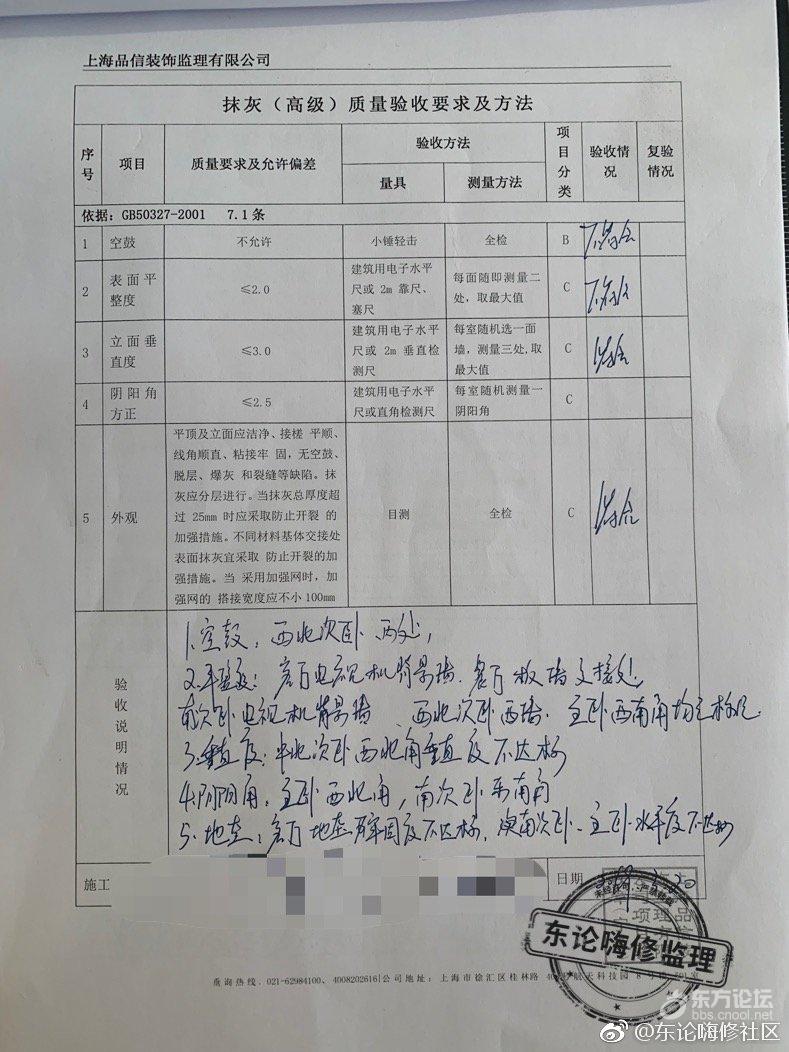 上海品信装饰监理有限公司
抹灰（高级）质量验收要求及方法
序号 项目 质量要求及允许偏差 验收方法 项目分类 验收情况 复验情况
量具 测量方法
依据：GB50327-2001 7.1条
1 空鼓 不允许 小锤轻击 全检 B 不符合
2 表面平整度 ≤2.0 建筑用电子水平尺或 2m 靠尺、塞尺 每面随即测量二处，取最大值 C 不符合
3 立面垂直度 ≤3.0 建筑用电子水平尺或 2m 垂直检测尺 每室随机选一面墙，测量三处,取最大值 C 符合
4 阴阳角方正 ≤2.5 建筑用电子水平尺或直角检测尺 每室随机测量一阴阳角 C
5 外观 平顶及立面应洁净、接槎 平顺、线角顺直、粘接牢 固，无空鼓、脱层、爆灰 和裂缝等缺陷。抹灰应分层进行。当抹灰总厚度超过 25mm 时应采取防止开裂 的加强措施。不同材料基体交接处表面抹灰宜采取 防止开裂的加强措施。当 采用加强网时，加强网的 搭接宽度应不小 100mm 目测 全检 C 符合
验收说明情况
1.空鼓：西北次卧 两处，
2.平整度：客厅电视机背景墙、客厅 板 墙交接处
南次卧电视机背景墙、西北次卧西墙、主卧西南角均
3.垂直度：北次卧西北角垂直度不达标
4.阴阳角：主卧西北角，南次卧东南角
5.地坪：客厅地坪 牢固度不达标，南次卧、主卧水平度不达标
施工
日期
未经许可，严禁转载
东论嗨修监理
查询热线：021-62984100、 4008202616|公司地址：上海市徐汇区桂林路
航天科技园
东方论坛
bbs.cnool.net
@东论嗨修社区